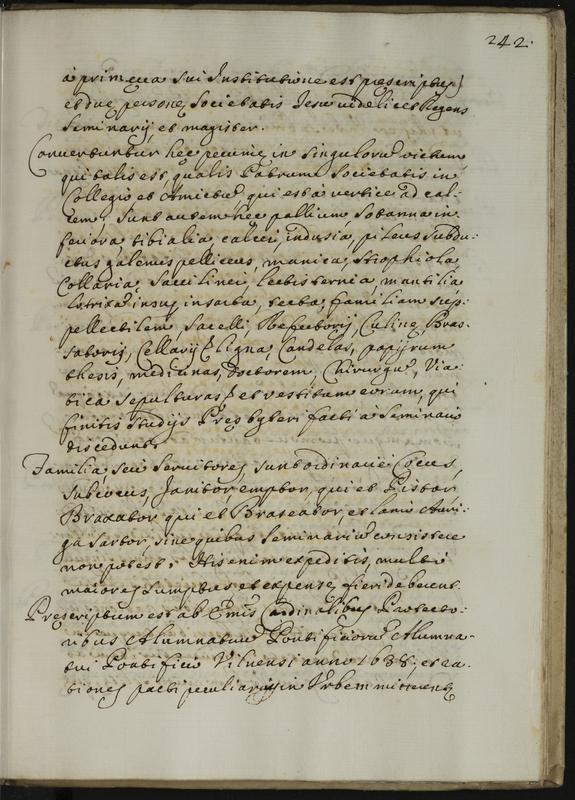 242.
à primeua sui Institutione est præscriptus)
et duę personę Societatis Iesu videlicet Regens
Seminarij et magister.
Conuertuntur hęc pecunię in singuloru victum
qui talis est, qualis Patrum Societatis in
Collegio et amictu qui est à vertice ad cal-
cem; sunt autem hęc pallium Sotanna in-
feriora, tibialia, calcei, indusia, pileus subdu-
ctus galerus pelliceus, manica, strophiola
Collaria, Sacci linei, lectisternia, mantilia
lotrice in suis in sarta, tecta, familiam sup-
pellectilem, Sacelli, Refectorij, Culinę Bras-
satorij, Cellarij ligna, Candelas, papyrum
thesis, medicinas, doctorem, Chirurgu, Via-
tica sepulturas et vestitum eorum, qui
finitis studijs Presbyteri facti a Seminario
discedunt.
Familia, seu seruitores sunt ordinarie Cocus,
Subcocus, Janitor, emptor, qui et Pistor
Braxator qui et Braseator, et lanio Auri-
ga sartor, sine quibus Seminariu consistere
non potest. His enim expeditis, multò
maiores sumptus et expensę fieri deberent.
Pręscriptum est ab Emis Cardinalibus Protecto-
ribus Alumnatuu Pontificioru Alumna-
tui Pontificio Vilnensi anno 1638, et ra-
tiones facti peculiaris in Urbem mitterent